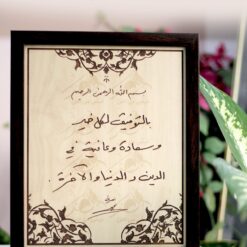 بسم الله الرحمن الرحيم
بالتوفيق لكل خير
وسعادة وعافية في
الدين والدنيا والآخرة.